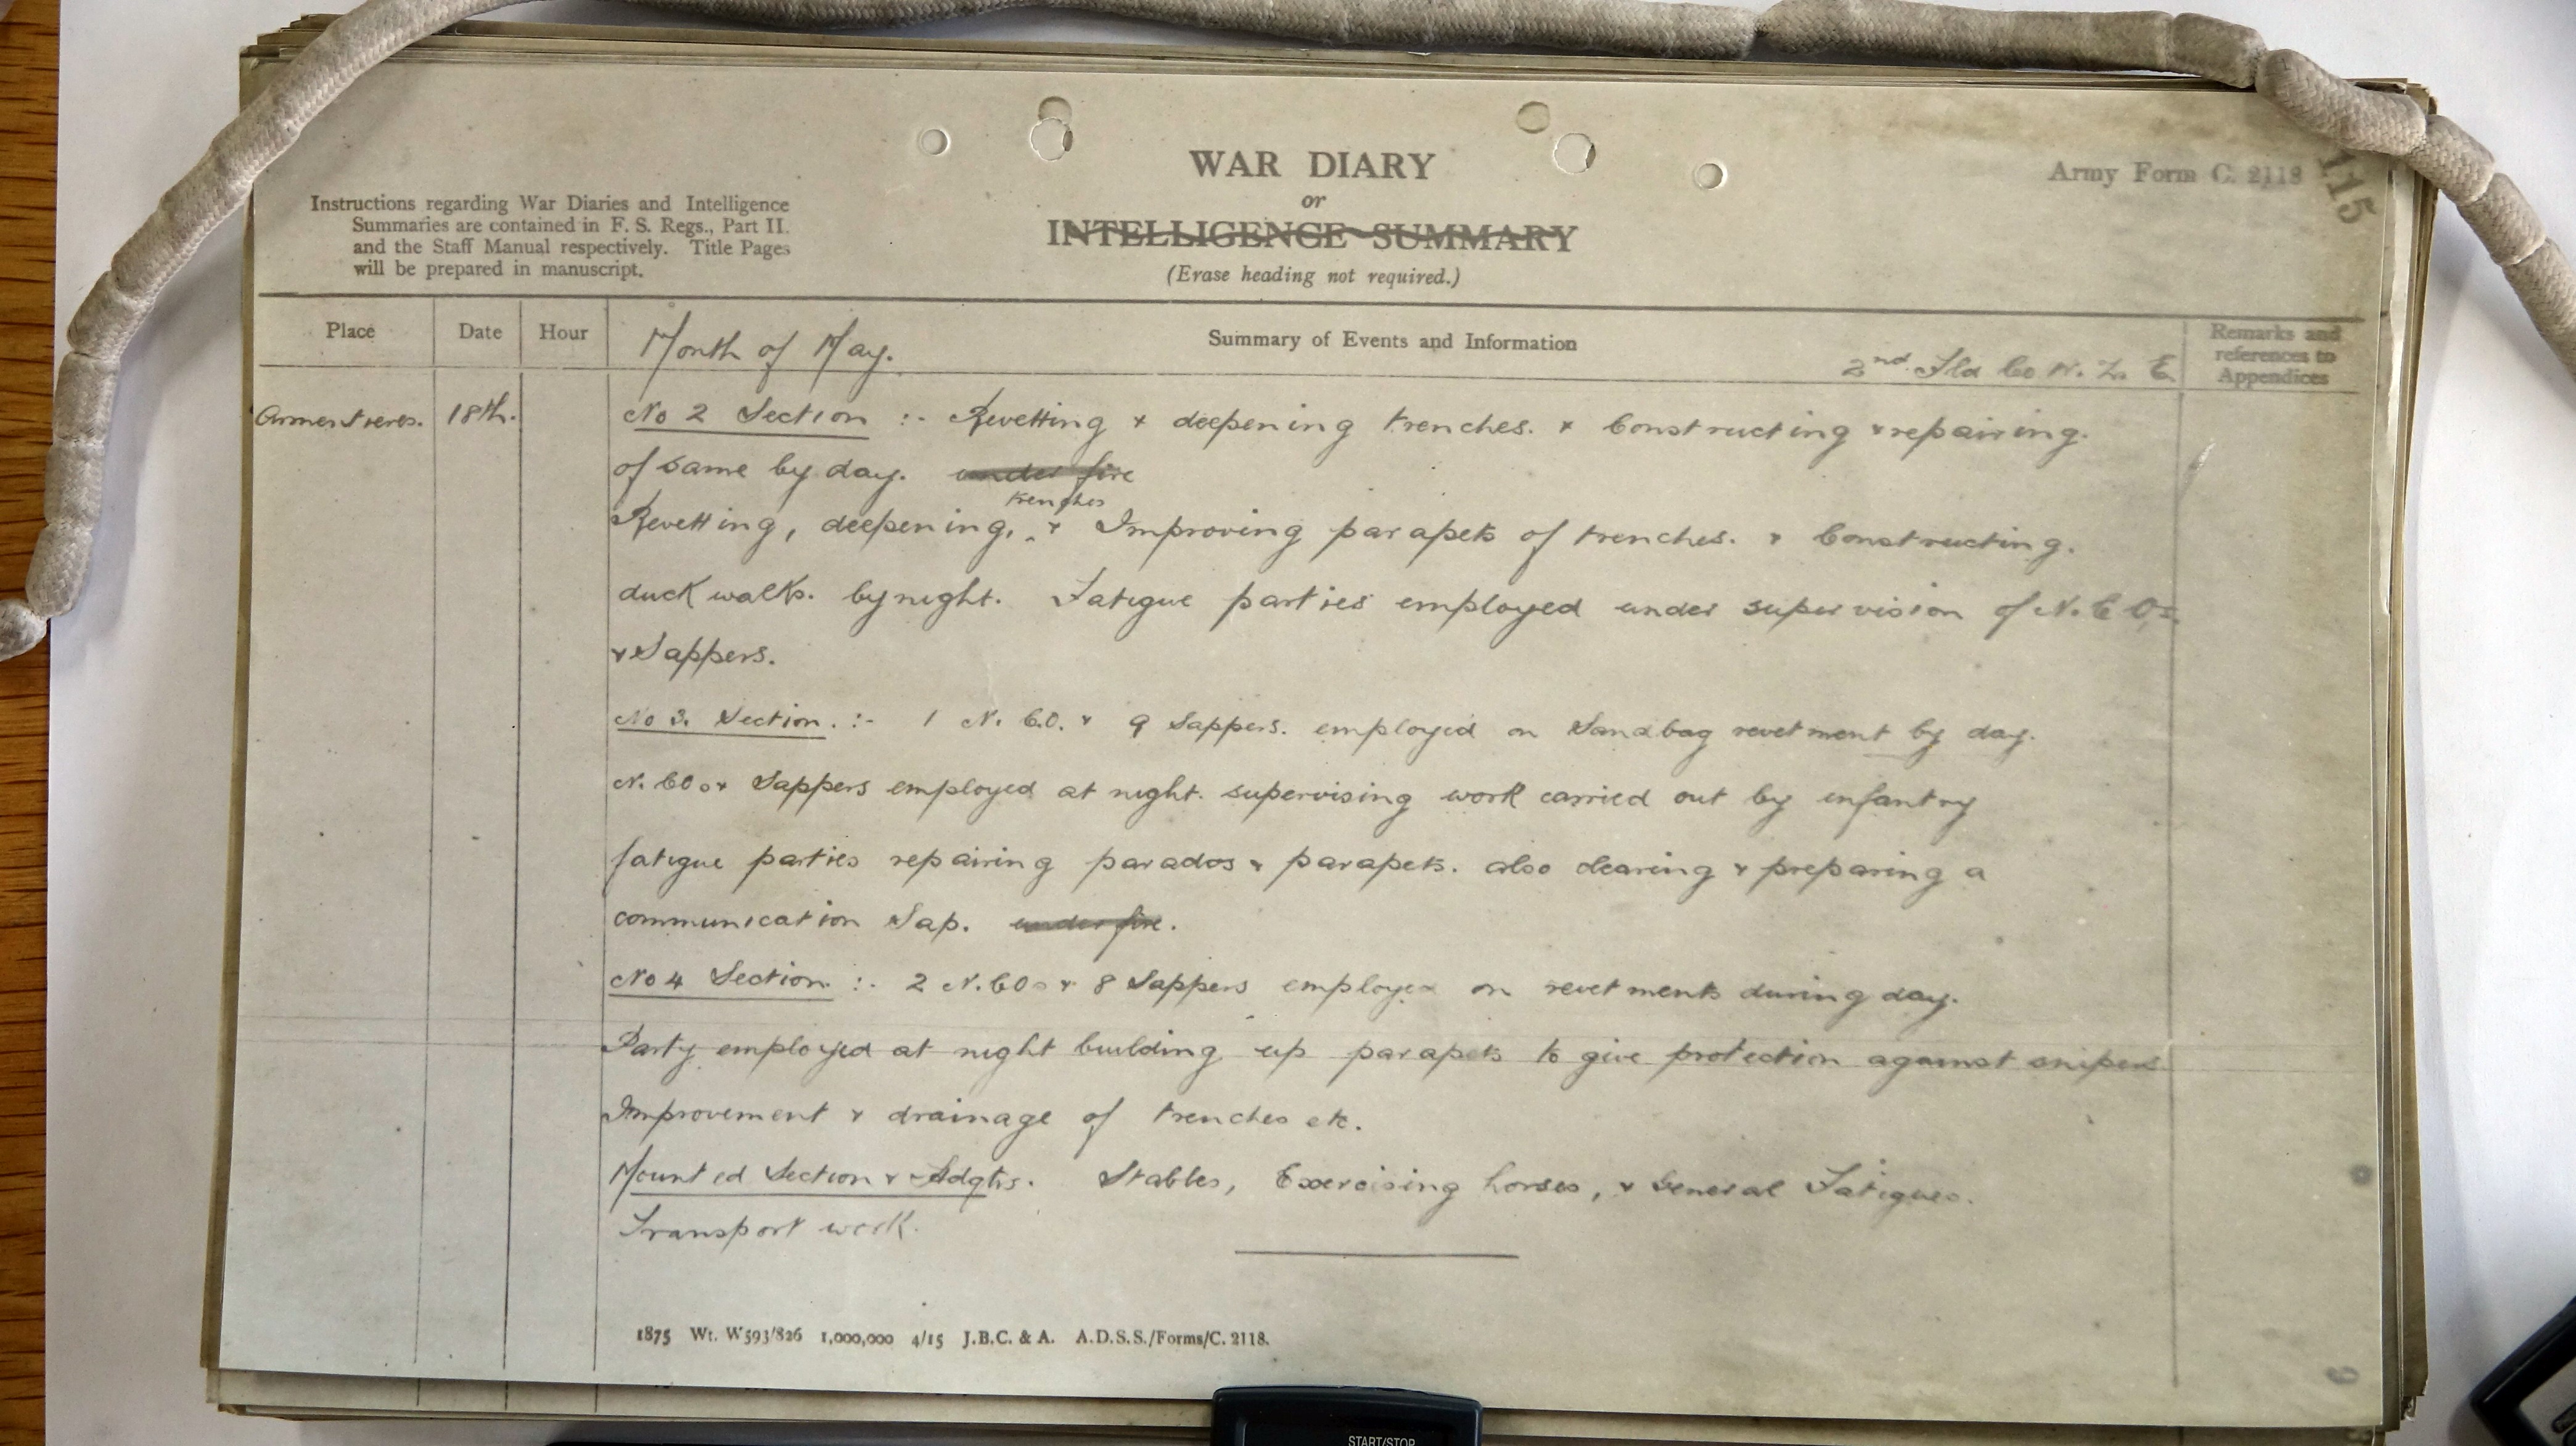 115
Army Form C. 2118
WAR DIARY
or
INTELLIGENCE SUMMARY
(Erase heading not required.)
Instructions regarding War Diaries and Intelligence
Summaries are contained in F. S. Regs., Part II.
and the Staff Manual respectively. Title Pages
will be prepared in manuscript.
Place Date Hour Summary of Events and Information Remarks and
references to
Appendices
Month of May.
2nd. Fld Co N. Z. E
Armentieres. 18th.
No 2 Section :- Revetting & deepening trenches. & Constructing & repairing.
of same by day. under fire
trenches
Revetting, deepening, & Improving parapets of trenches. & Constructing.
duck walks. by night. Fatigue parties employed under supervision of N.C.O,s.
& Sappers.
No 3. Section. :- 1 N. C.O. & 9 Sappers. employed on Sandbag revetment by day.
N. COs & Sappers employed at night. supervising work carried out by infantry
fatigue parties repairing parados & parapets. also clearing & preparing a
communication Sap. under fire.
No 4 Section. :- 2 N. COs & 8 Sappers employed on revetments during day.
Party employed at night building up parapets to give protection against snipers
Improvement & drainage of trenches etc.
Mounted Section & Hdqtrs. Stables, Exercising horses, & General Fatigues.
Transport work.
1875 Wt. W593/826 1,000,000 4/15 J.B.C. & A. A.D.S.S./Forms/C. 2118.
9
START/STOP